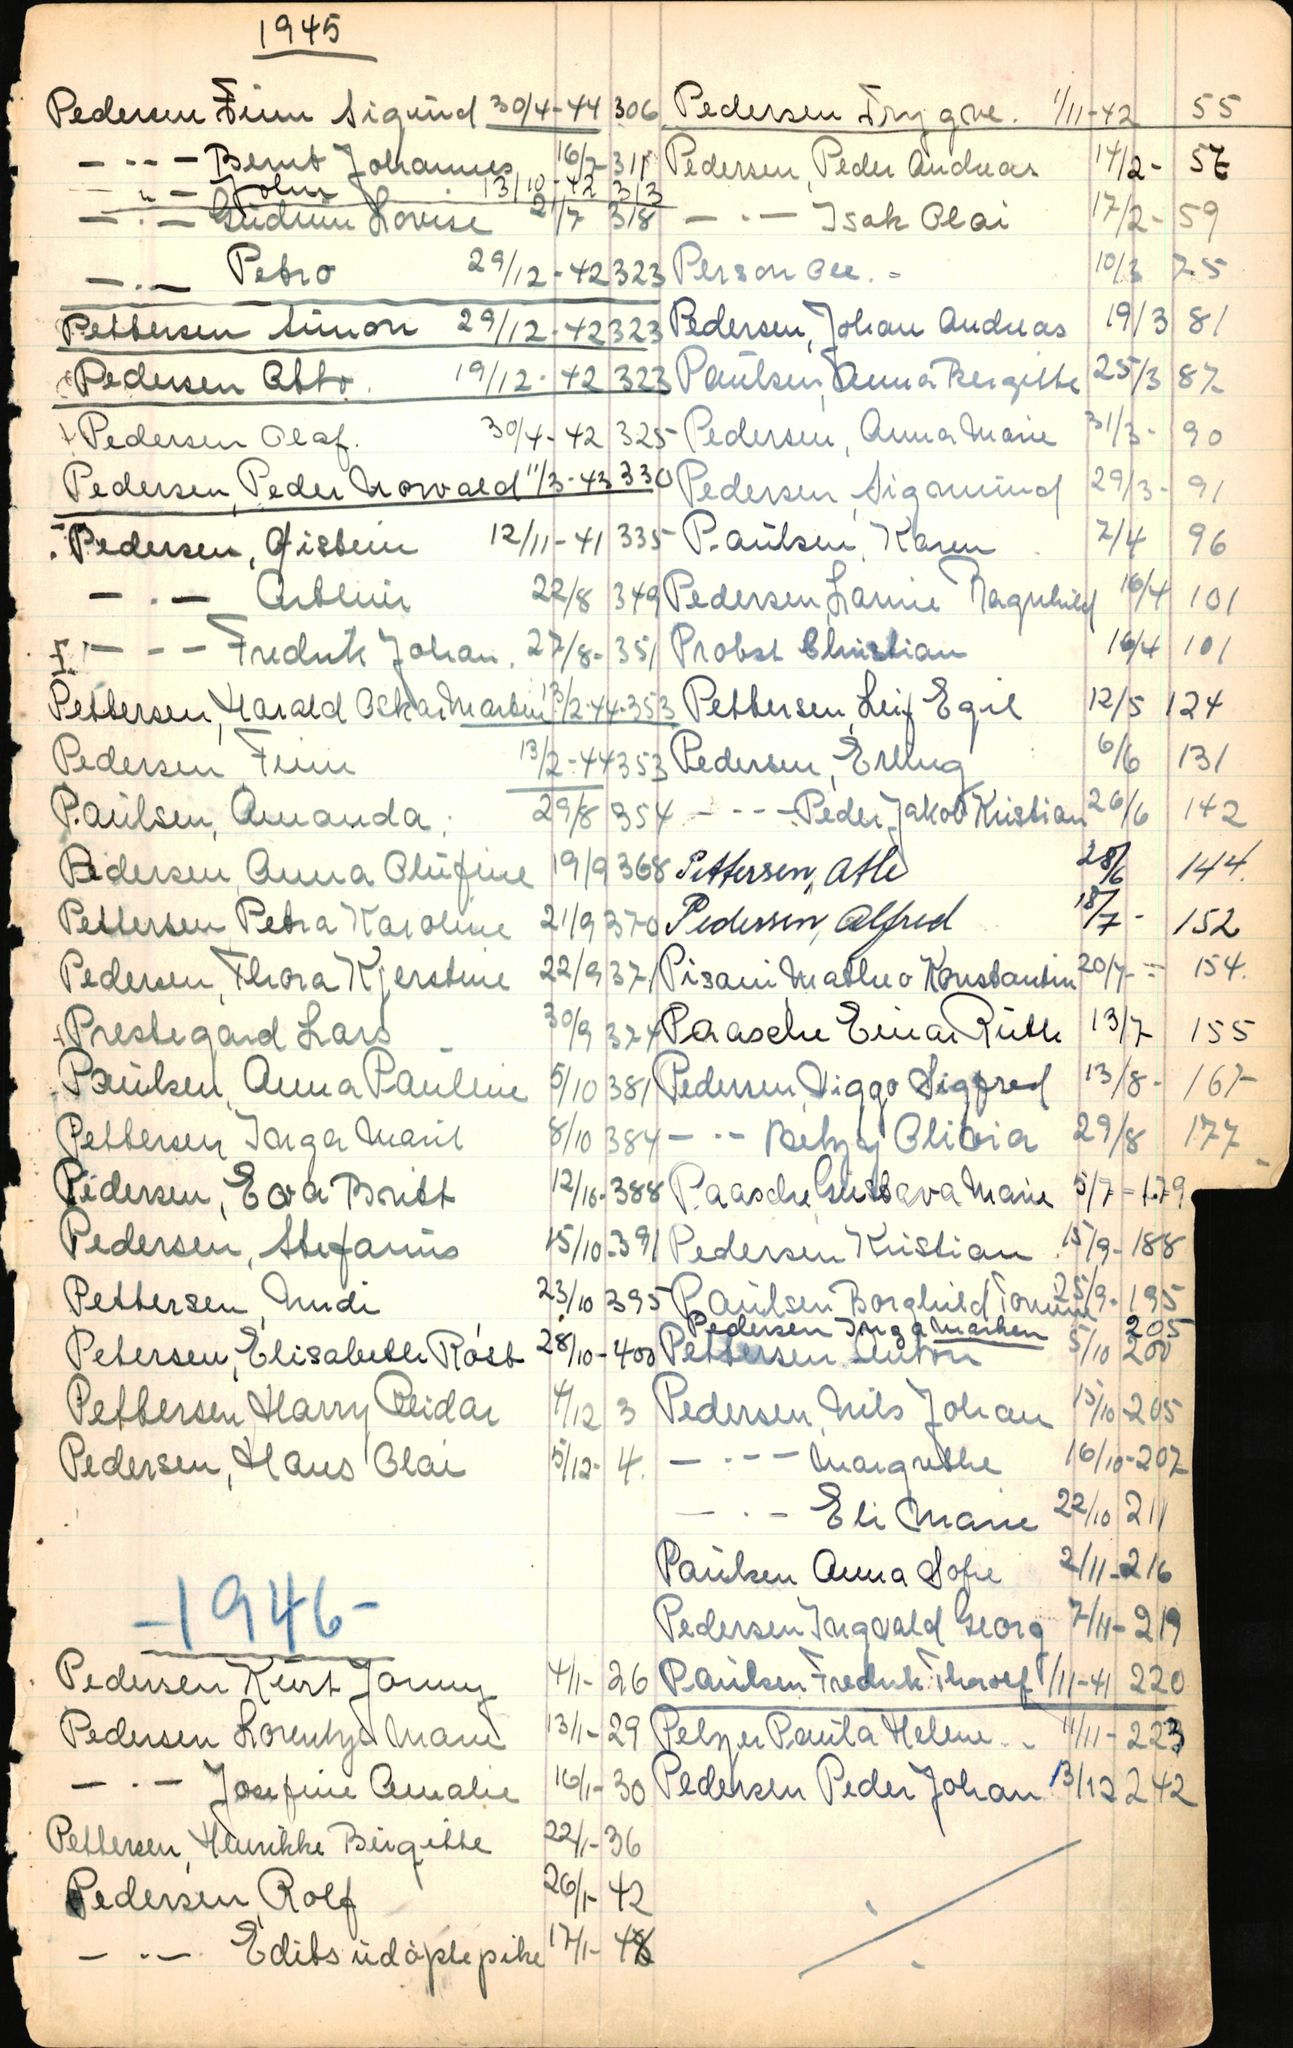 1945
Pedersen Finn Sigund 30/4-44 306
— · · — Bernt Johannes 16/7- 311
— " — John 13/10-42 313
— · — Gudrun Lovise 21/7 318
— · — Petro 29/12-42 323
Pettersen Simon 29/12-42 323
Pedersen Otto. 19/12-42 323
Pedersen Olaf. 30/4-42 325
Pedersen, Peder Norvald 11/3-43 330
Pedersen, Øistein 12/11-41 335
— · — 22/8 349
— - — Fredrik Johan. 27/8- 351
Pettersen, Harald Oskar Martin 13/2-44-353
Pedersen Finn 13/2-44 353
Paulsen, Amanda. 29/8 354
Pedersen, Anna Olufine 19/9 368
Pettersen Petra Karoline 21/9 370
Pedersen, Thora Kjerstine 22/9 371
Prestegard Lars 30/9 374
Paulsen, Anna Pauline 5/10 381
Pettersen Inga Marit 8/10 384
Pedersen, Eva Britt 12/10-388
Pedersen, Stefanus 15/10-391
Pettersen, 23/10 395
Petersen, Elisabeth Røst 28/10-400
Pettersen, Harry Reidar 4/12 3
Pedersen, Hans Olai 5/12- 4.
-1946-
Pedersen Kurt Jonny 4/1- 26
Pedersen Lorentze Marie 13/1- 29
— · — Josefine Amalie 16/1- 30
Pettersen, Henrikke Birgitte 22/1- 36
Pedersen, Rolf 26/1- 42
— · · — Edits udøpte pike 17/1- 48
Pedersen Trygve. 1/11-42 55
Pedersen, Peder Andreas 14/2- 57
— · · — Isak Olai 17/2- 59
Person Ole. - 10/3 75
Pedersen, Johan Andreas 19/3 81
Paulsen, Anna Bergitte 25/3 87
Pedersen, Anna Marie 31/3- 90
Pedersen, Sigmund 29/3- 91
Paulsen, Karen 7/4 96
Pedersen Ragnhild 16/4 101
Probst Christian 16/4 101
Pettersen, Leif Egil 12/5 124
Pedersen, Erling 6/6 131
— · - — Peder Jakob Kristian 26/6 142
Pettersen, Atle 28/6 144.
Pedersen, Alfred 18/7 - 152
Pisani Matheo Konstantin 20/7- = 154.
Paasche Einar Ruth 13/7 155
Pedersen, Viggo Sigfred 13/8- 167
— · · — Betzy Olivia 29/8 177
Paasche Gustava Marie 5/7-179
Pedersen Kristian 15/9-188
Paulsen Borghild 25/9-195
Pedersen Inga Marken 205
Pettersen Anton 5/10 200
Pedersen, Nils Johan 15/10-205
— · - — Margrethe 16/10-207
— · — Eli Marie 22/10 211
Paulsen Anna Sofie 2/11-216
Pedersen Ingvald Georg 7/11-219
Paulsen Fredrik Tholf 1/11-41 220
Pelzer Paula Helene.. 11/11-223
Pedersen Peder Johan 13/12 242